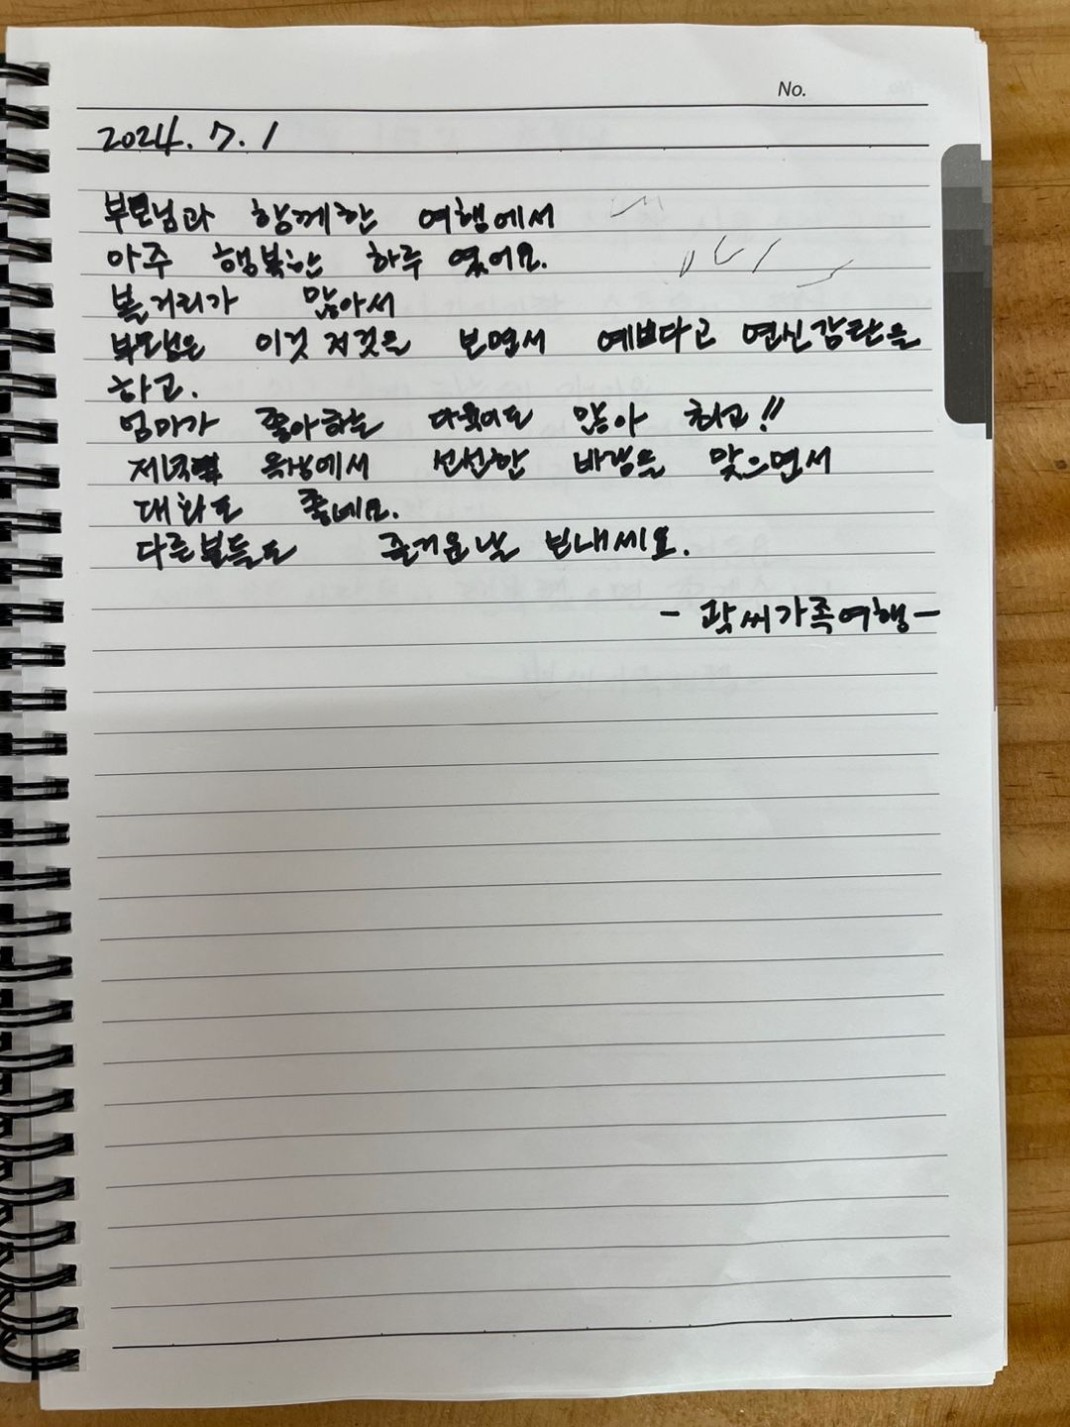 No.
2024. 7. 1
부모님과 함께한 여행에서
아주 행복한 하루 였어요.
볼거리가 많아서
부모님은 이것 저것을 보면서 예쁘다고 연신감탄을
하고.
엄마가 좋아하는 다육이도 많아 최고!!
저녁때 옥상에서 선선한 바람을 맞으면서
대화도 좋네요.
다른분들도 즐거운날 보내세요.
- 곽씨가족여행 -